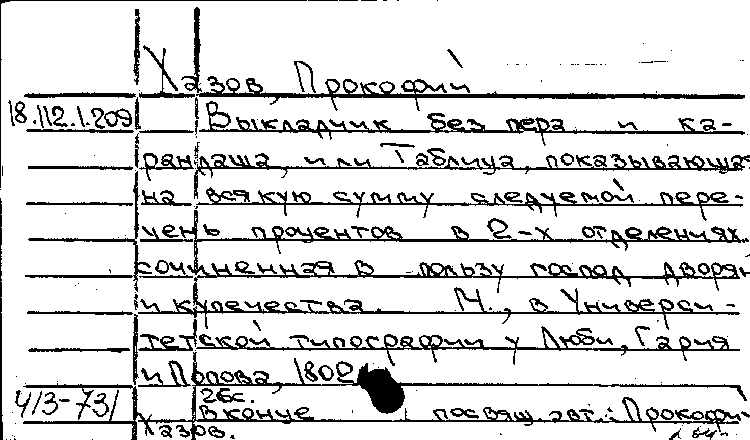 Хазов, Прокофий
18.112.1.209 Выкладчик без пера и ка-
рандаша, или Таблица, показывающая
на всякую сумму следуемой пере-
чень процентов в 2-х отделениях,
сочиненная в пользу господ дворян
и купечества. М., в Универси-
тетской типографии у Люби, Гария
и Попова, 1802
26с.
413-731 В конце посвящ. авт.: Прокофий
Хазов.